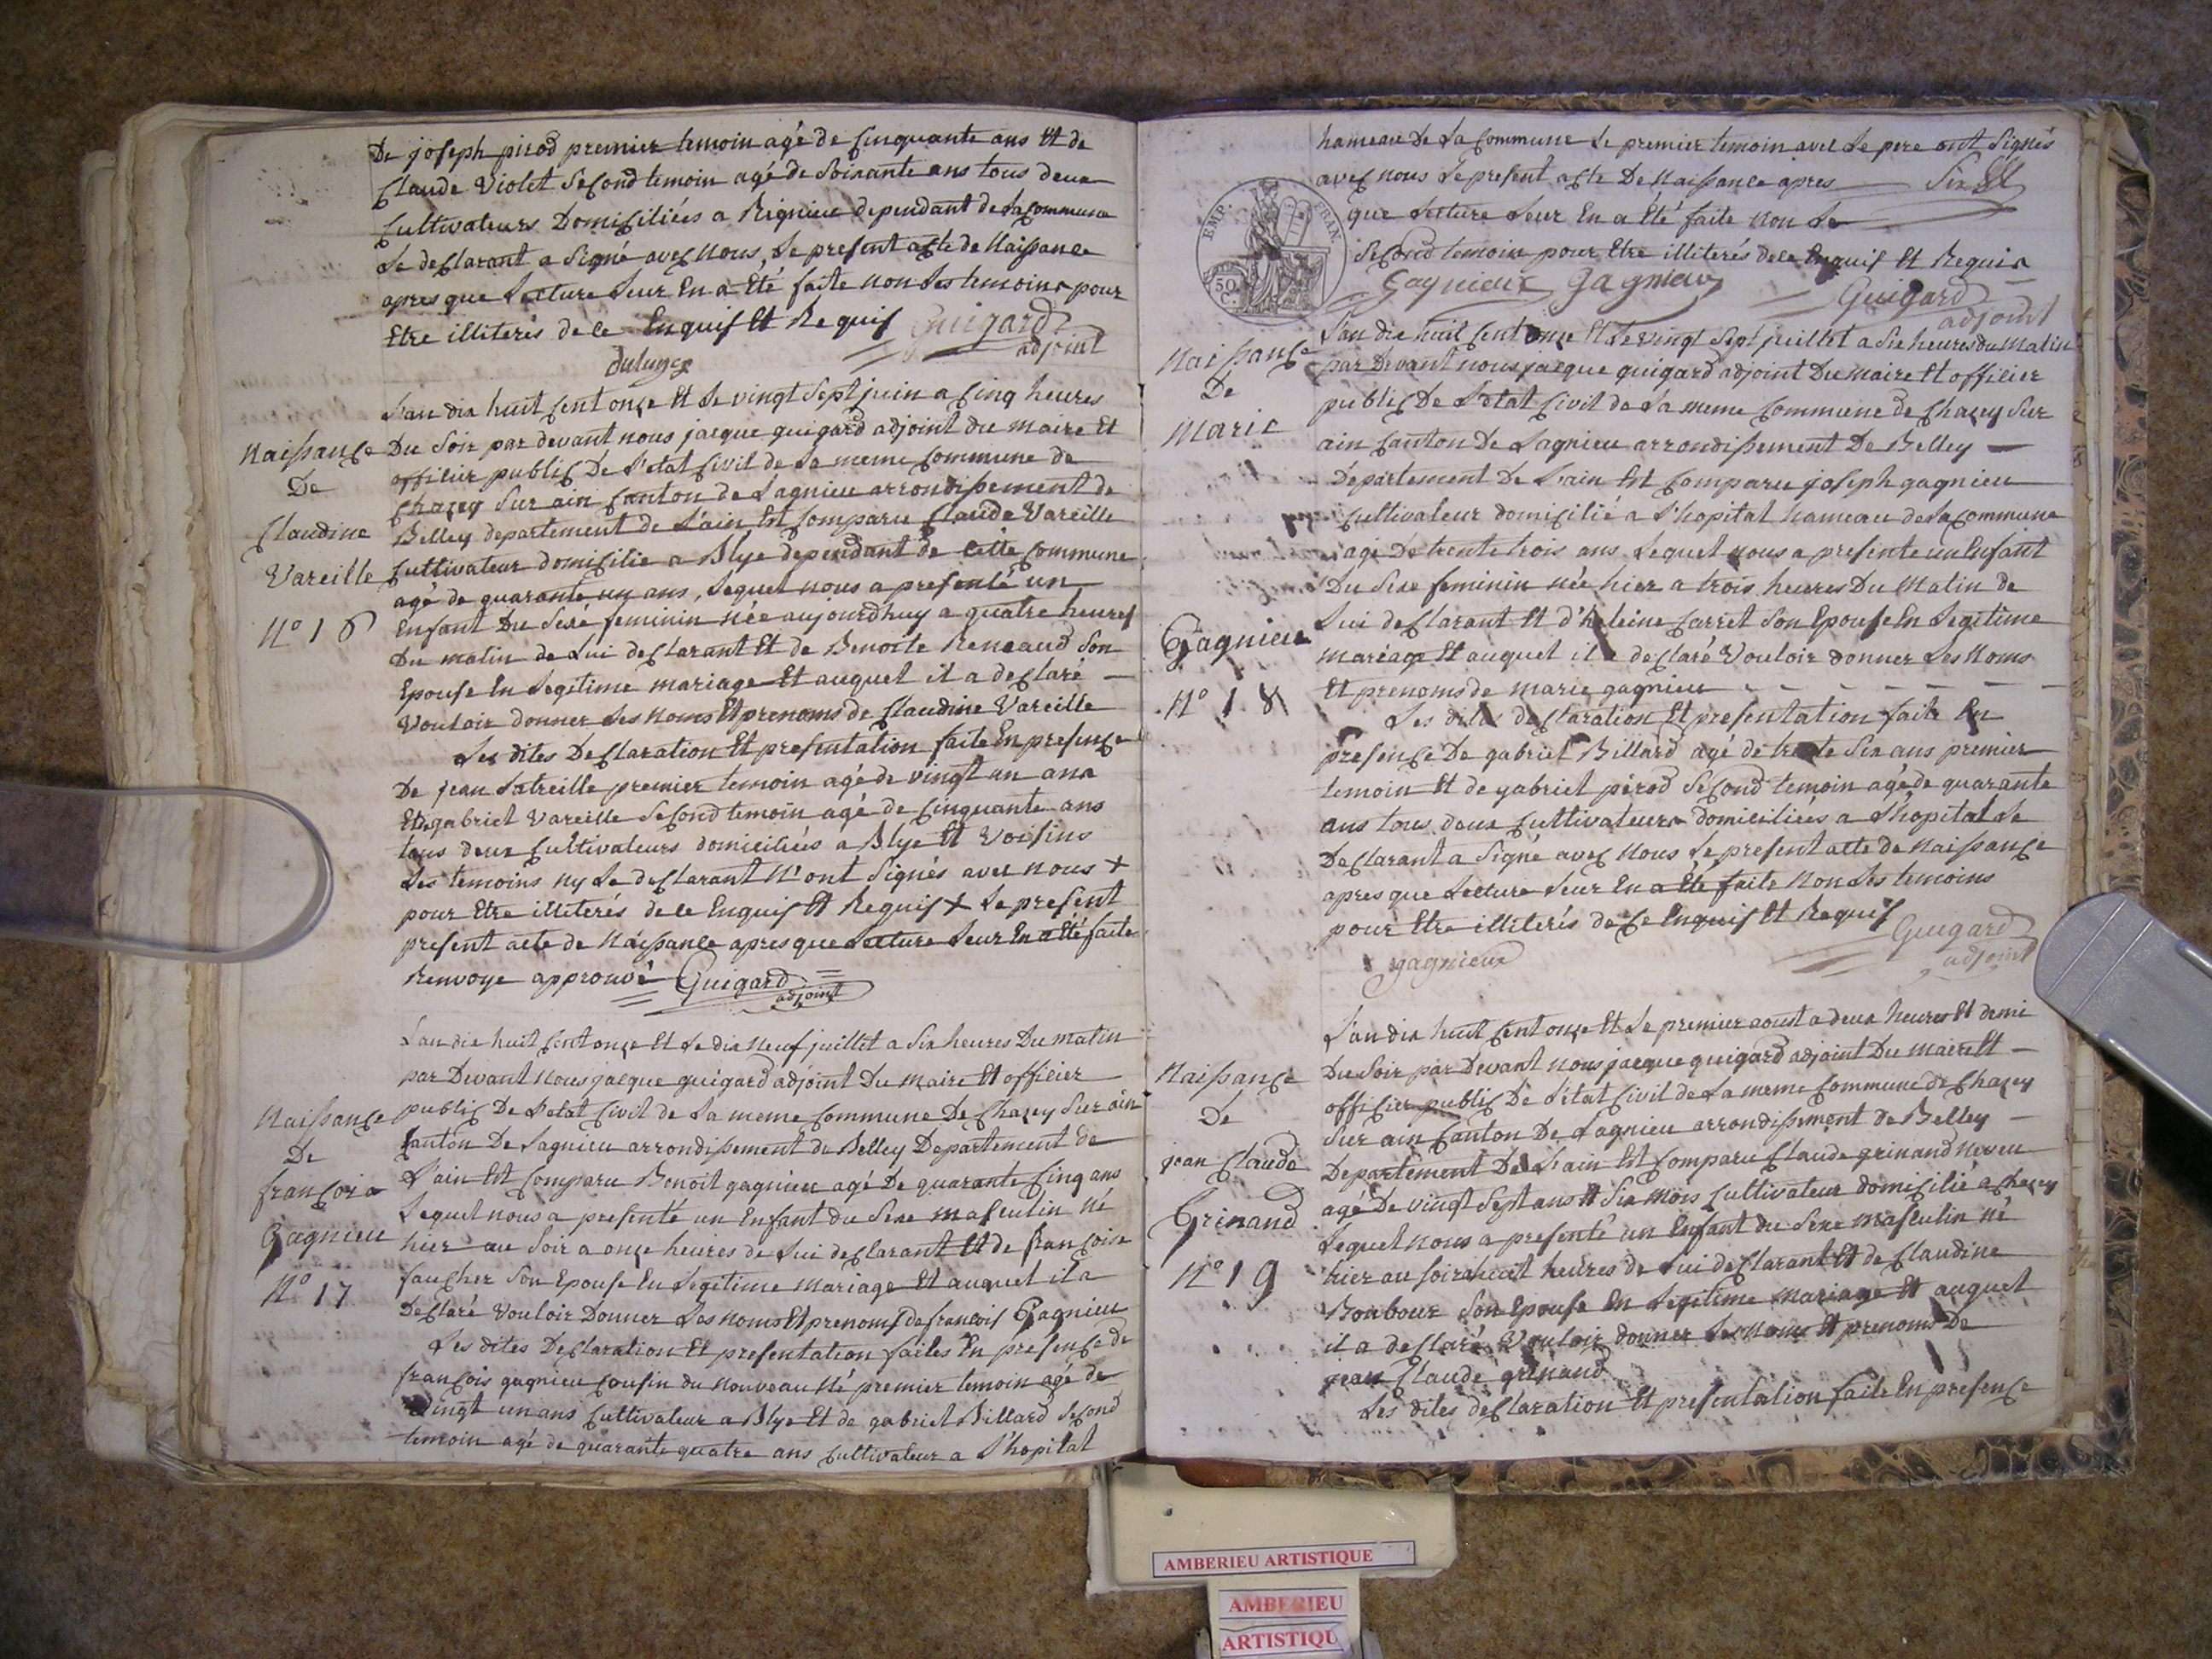 De joseph pirod premier temoin agé de Cinquante ans Et de
Claude Violet Second temoin agé de Soixante ans tous deux
Cultivateurs Domiciliées a Rignieu dependant de la Commune
Le declarant a Signé avec Nous, Le present acte de Naissance
apres que Lecture Leur En a Eté faite Non Les temoins pour
Etre illiterés de ce Enquis Et Requis Guigard
adjoint
Naissance
De
Claudine
Vareille
N° 16
L'an dix huit Cent onze Et Le vingt Sept juin a Cinq heures
Du Soir par devant nous jacque guigard adjoint du maire Et
officier public De L'etat Civil de La meme Commune de
Chazey Sur ain Canton de Lagnieu arrondissement de
Belley departement de L'ain Est Comparu Claude Vareille
Cultivateur domicilie a Blye dependant de Cette Commune
agé de quarante un ans, Lequel nous a presenté un
Enfant Du Sexe feminin née aujourdhuy a quatre heures
Du matin de Lui declarant Et de Benoite Reneaud Son
Epouse En Legitime mariage Et auquel il a declaré
Vouloir donner Les Noms Et prenoms de Claudine Vareille
Les dites Declaration Et presentation faite En presence
De jean Latreille premier temoin agé de vingt un ans
Et de gabriel Vareille Second temoin agé de Cinquante ans
tous deux Cultivateurs domiciliées a Blye Et Voisins
Les temoins ny Le declarant N'ont Signés avec nous +
pour Etre illiterés de ce Enquis Et Requis + Le present
present acte de Naissance apres que Lecture Leur En a Eté faite
Renvoye approuvé Guigard
adjoint
Naissance
De
françois
Gagnieu
N° 17
L'an dix huit Cent onze Et Le dix Neuf juillet a Six heures Du matin
par Devant Nous jacque guigard adjoint Du maire Et officier
public De L'etat Civil de La meme Commune De Chazey Sur ain
Canton De Lagnieu arrondissement de Belley Departement de
L'ain Est Comparu Benoit gagnieu agé De quarante Cinq ans
Lequel nous a presenté un Enfant du Sexe masculin né
hier au Soir a onze heures de Lui declarant Et de françoise
faucher Son Epouse En Legitime mariage Et auquel il a
Declaré Vouloir Donner Les Noms Et prenoms de francois Gagnieu
Les dites Declaration Et presentation faites En presence de
françois gagnieu Cousin du Nouveau Né premier temoin agé de
Vingt un ans Cultivateur a Blye Et de gabriel Billard Second
temoin agé de quarante quatre ans Cultivateur a L'hopital
hameau De La Commune Le premier temoin avec Le pere ont Signés
avec nous Le present acte De Naissance apres
que Lecture Leur En a Eté faite Non Le
Second temoin pour Etre illiterés de ce Enquis Et Requis
Gagnieux Gagnieux Guigard
adjoint
EMP. FRAN.
50
C.
Naissance
De
Marie
Gagnieu
N° 18
L'an dix huit Cent onze Et Le vingt Sept juillet a Six heures du Matin
par Devant nous jacque guigard adjoint Du maire Et officier
public De L'etat Civil de La meme Commune de Chazey Sur
ain Canton De Lagnieu arrondissement De Belley
Departement De L'ain Est Comparu joseph gagnieu
Cultivateur domicilié a L'hopital hameau de La Commune
agé De trente trois ans Lequel nous a presente un Enfant
Du Sexe feminin née hier a trois heures Du Matin de
Lui declarant Et d'heleine Carret Son Epouse En Legitime
mariage Et auquel il a declaré Vouloir donner Les Noms
Et prenoms de marie gagnieu
Les dites declaration Et presentation faite En
presence De gabriel Billard agé de trente Six ans premier
temoin Et de gabriel pérod Second temoin agé de quarante
ans tous deux Cultivateurs domiciliées a L'hopital Le
Declarant a Signé avec Nous Le present acte de Naissance
apres que Lecture Leur En a Eté faite Non Les temoins
pour Etre illiterés de Ce Enquis Et Requis Guigard
gagnieux adjoint
Naissance
De
jean Claude
Grinand
N° 19
L'an dix huit Cent onze Et Le premier aoust a deux heures Et demi
Du Soir par Devant nous jacque guigard adjoint Du maire Et
officier public De L'etat Civil de La meme Commune de Chazey
Sur ain Canton De Lagnieu arrondissement de Belley
Departement De L'ain Est Comparu Claude grinand
agé De vingt Sept ans Et Six mois Cultivateur domicilié a Chazey
Lequel nous a presenté un Enfant du Sexe masculin né
hier au soir a huit heures de Lui declarant Et de Claudine
Bonbour Son Epouse En Legitime mariage Et auquel
il a declaré Vouloir donner Les Noms Et prenoms De
jean Claude grinand
Les dites declaration Et presentation faite En presence
AMBERIEU ARTISTIQUE
AMBERIEU
ARTISTIQU